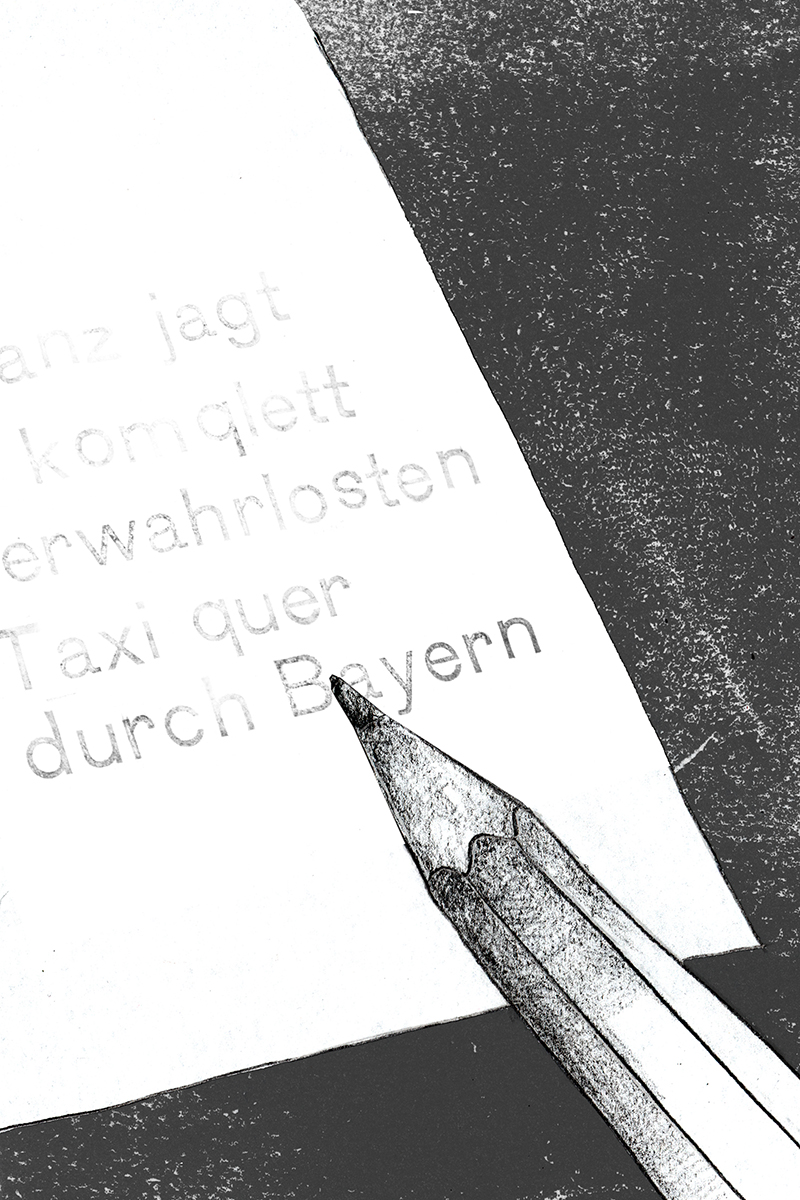 anz jagt
komqlett
erwahrlosten
Taxi quer
durch Bayern